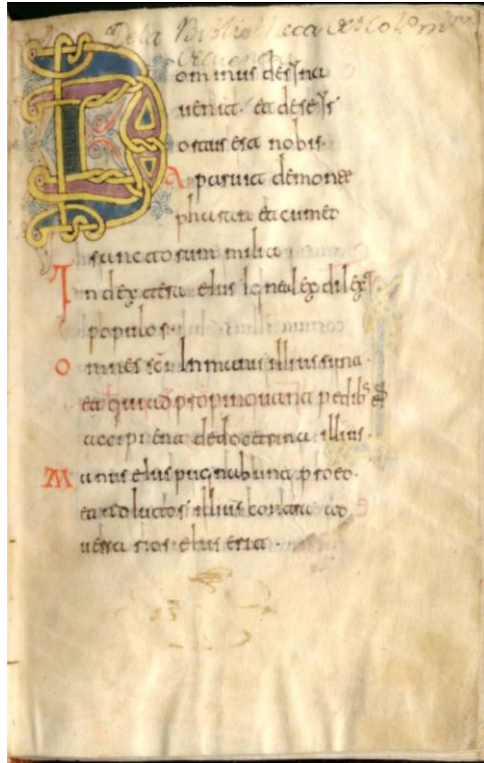 De la Bibliotheca del Col.o m.or
de Cuenca
Dominus de syna
ueniet et de seyr
ortus est nobis
Aparuit de monte
pharan et cum eo
sanctorum milia
In dextera eius ignea lex dilexit
populos
Omnes sci in manu illius sunt
et qui adpropinquant pedibus eius
accipient de doctrina illius
Manus eius pugnabunt pro eo
et adiutor illius contra ad
uersarios eius erit